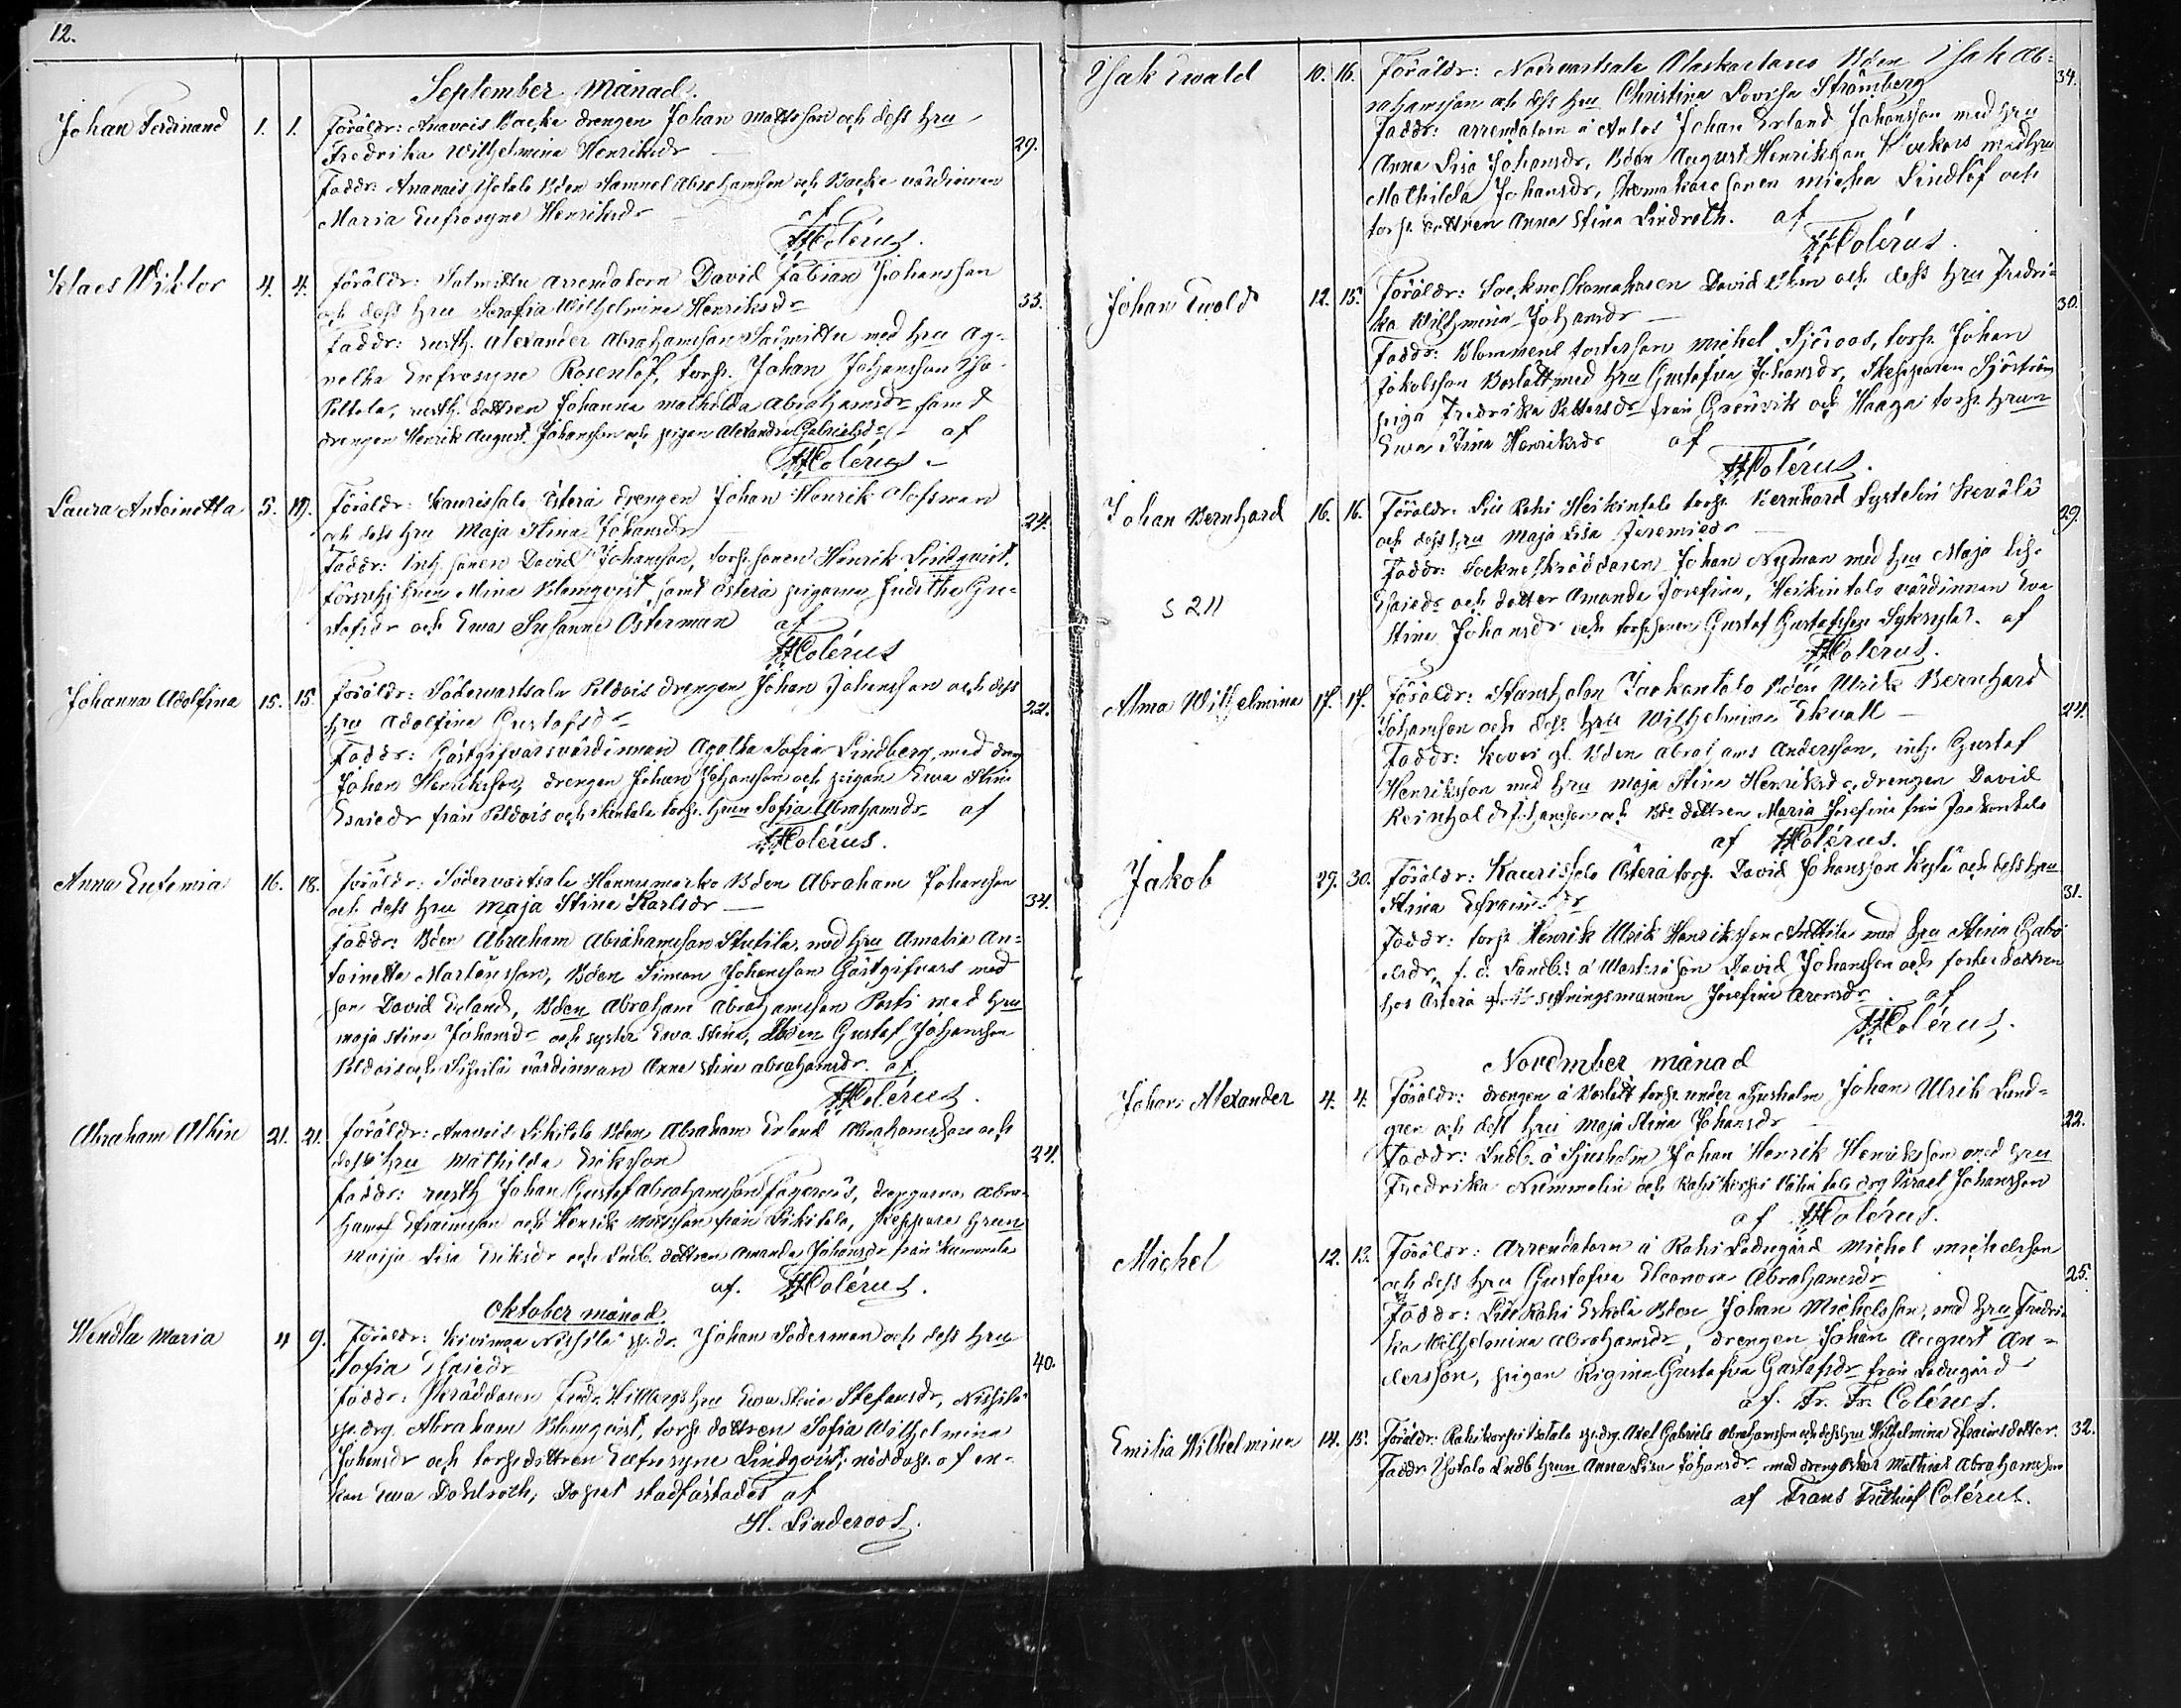 12.
September månad.
Johan Ferdinand 1. 1. Föräldr: Anavois Backe drengen Johan Mattsson och dess hru
Fredrika Wilhelmina Henriksdr 29.
Faddr: Anavois Isotalo Bden Samuel Abrahamsson och Backe värdinnan
Maria Eufrosyne Henriksdr
af
FFColérus.
Klaes Wiktor 4. 4. Föräldr: Salmittu arrendatorn David Fabian Johansson
och dess hru Serafia Wilhelmina Henriksdr 33.
Faddr: rusth. Alexander Abrahamsson Salmittu med hru Ag-
netha Eufrosyne Rosenlöf, torp. Johan Johansson Iso-
Peltola, rusth. dottren Johanna Mathilda Abrahamsdr samt
drengen Henrik August Johansson och pigan Alexandra Gabrielsdr af
FFColérus
Laura Antoinetta 5. 19. Föräldr: Kaurissalo Österå drengen Johan Henrik Olofsman
och dess hru Maja Stina Johansdr 24.
Faddr: Inh. sonen David Johansson, torp. sonen Henrik Lindquist,
Mina Blomqvist, samt Österå pigorna Juditha Gu-
stafsdr och Ewa Susanna Österman af
FFColérus
Johanna Adolfina 15. 15. Föräldr: Södervartsala Poldois drengen Johan Johansson och dess
hru Adolfina Gustafsdr 22.
Faddr: Gästgifvarsvärdinnan Agatha Sofia Lindberg, med drng
Johan Henriksson, drengen Johan Johansson och pigan Ewa Stina
Esaiedr från Poldois och torp. hrun Sofia Abrahamsdr af
FFColérus.
Anna Eufemia 16. 18. Föräldr: Södervartsala Hannumarko Bden Abraham Johansson
och dess hru Maja Stina Karlsdr 34.
Faddr: Bden Abraham Abrahamsson Stufila, med hru Amalia An-
toinetta Martensson, Bden Simon Johansson Gästgifvars med
son David Erland, Bden Abraham Abrahamsson Posti med hru
Maja Stina Johansdr och syster Ewa Stina, Bden Gustaf Johansson
Poldois och värdinnan Anna Stina Abrahamsdr. af
FFColérus.
Abraham Albin 21. 21. Föräldr: Anavois Likitalo Bden Abraham Erland Abrahamsson och
dess hru Mathilda Eriksson 24.
Faddr: rusth Johan Gustaf Abrahamsson Fagernäs, drengarna Abra-
ham Efraimsson och Henrik Mattsson från Likitalo, skeppare hrun
Maija Lisa Eriksdr och Lndb. dottren Amanda Johansdr från Kummela
af. FFColérus.
Oktober månad
Wendla Maria 4 9. Föräldr: Kivimaa Nishilä sp. dr. Johan Söderman och dess hru
Sofia Esaiedr 40.
Faddr: Skräddaren Fredr. Willbergs hru Ewa Stina Stefansdr, Nisshilä
sp. drg. Abraham Blomqvist, torp dottren Sofia Wilhelmina
Johansdr och torp dottren Eufrosyne Lindqvist; nöddöpt af en-
kan Ewa Dahlroth; Dopet stadfästades af
H. Linderoos.
Isak Ewald 10. 16. Föräldr: Norrvartsala Alaskartano Bden Isak Ab-
rahamsson och dess hru Christina Lovisa Strömberg 34.
Faddr: arrendatorn å Anlos Johan Erland Johansson med hru
Anna Lisa Johansdr, Bden August Henriksson med hru
Mathilda Johansdr, skomakaresonen Michel Lindlöf och
torp. dottren Anna Stina Lindroth. af
FFColérus.
Johan Ewald 12. 15. Föräldr: Sockneskomakaren David Ekm och dess hru Fredri-
ka Wilhmina Johansdr 30.
Faddr: Blommens fostersson Michel Sjöroos, torp. Johan
Jakobsson Borlatt, med hru Gustafva Johansdr, Skepparen Sjöström
piga Fredrika Pettersdr från Grenvik och Haaga torp. hrun
Ewa Stina Henriksdr af
FFColérus.
Johan Bernhard 16. 16. Föräldr: Lill Rahi Heikintalo torp. Bernhard Lystelin Kevälä
och dess hru Maja Lisa Jeremiedr 29.
Faddr: Sockneskräddaren Johan Nyman med hru Maja Lisa
Esaiedr och dotter Amanda Josefina, Heikintalo värdinnan Eva
Stina Johansdr och torpsonen Gustaf Gustafsson Syksyla. af
S 211
FFColérus.
Alma Wilhelmina 17. 17. Föräldr: Hansholm Jackantalo Bden Ulrik Bernhard
Johansson och dess hru Wilhelmina Ekvall 24.
Faddr: Kevoi gl. Bden Abrahams Andersson, inh. Gustaf
Henriksson med hru Maja Stina Henriksdr, drengen David
Reinhold Johansson och Bde dottren Maria Josefina från Jackantalo
af FFColérus.
Jakob 29. 30. Föräldr: Kaurissalo Österå torp. David Johansson Kyla och dess hru
Stina Efraimsdr 31.
Faddr: torp Henrik Ulrik Henriksson Anttila med hru Stina Gabri-
elsdr, f. d. Landb. å Wartsaari son David Johansson och fosterdottren
hos Österå sexhringsmannen Josefina Aronsdr. af
FFColérus.
November månad
Johan Alexander 4. 4. Föräldr: drengen å Borlatt torp under Sjusholm Johan Ulrik Lund-
gren och dess hru Maja Stina Johansdr 22.
Faddr: Lndb. å Sjusholm Johan Henrik Henriksson med hru
Fredrika Nummelin och Rahikorpi Välitalo drg Israel Johansson
af FFColérus.
Michel 12. 13. Föräldr: Arrendatorn å Rahi Ladugård Michel Michelsson
och dess hru Gustafva Eleonora Abrahamsdr 25.
Faddr: Lill Rahi Erkola Bden Johan Michelsson, med hru Fredri-
ka Wilhelmina Abrahamsdr, drengen Johan August An-
dersson, pigan Rigina Gustafva Gustafsdr från Ladugård
af. Fr. Fr. Colérus.
Emilia Wilhelmina 14. 15. Föräldr: Rahikorpi Isotalo sp. drg. Axel Gabriels Abrahamsson och dess hru Wilhelmina Efraimsdotter. 32.
Faddr: Isotalo Lndb hrun Anna Lisa Johansdr med dreng Oskar Mathias Abrahamsson
af Frans Frithiof Colérus.